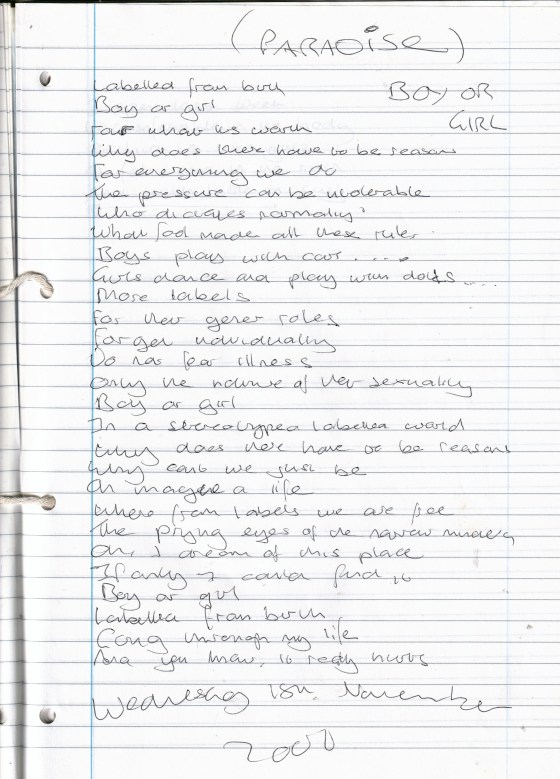 (PARADISE)
BOY OR
GIRL
Labelled from birth
Boy or girl
For what its worth
Why does there have to be reasons
For everything we do
The pressure can be
Who dictates normality?
What God made all these rules
Boys play with cars....
Girls dance and play with dolls....
More labels
For their gener roles
Forget individuality
Do not fear illness
Only the nature of their sexuality
Boy or girl
In a stereotyped labelled world
Why does there have to be reasons
Why cant we just be
Oh imagine a life
Where from labels we are free
The prying eyes of the narrow minded
Oh, I dream of this place
If only I could find it
Boy or girl
Labelled from birth
Going through my life
And you know, it really hurts
Wednesday November